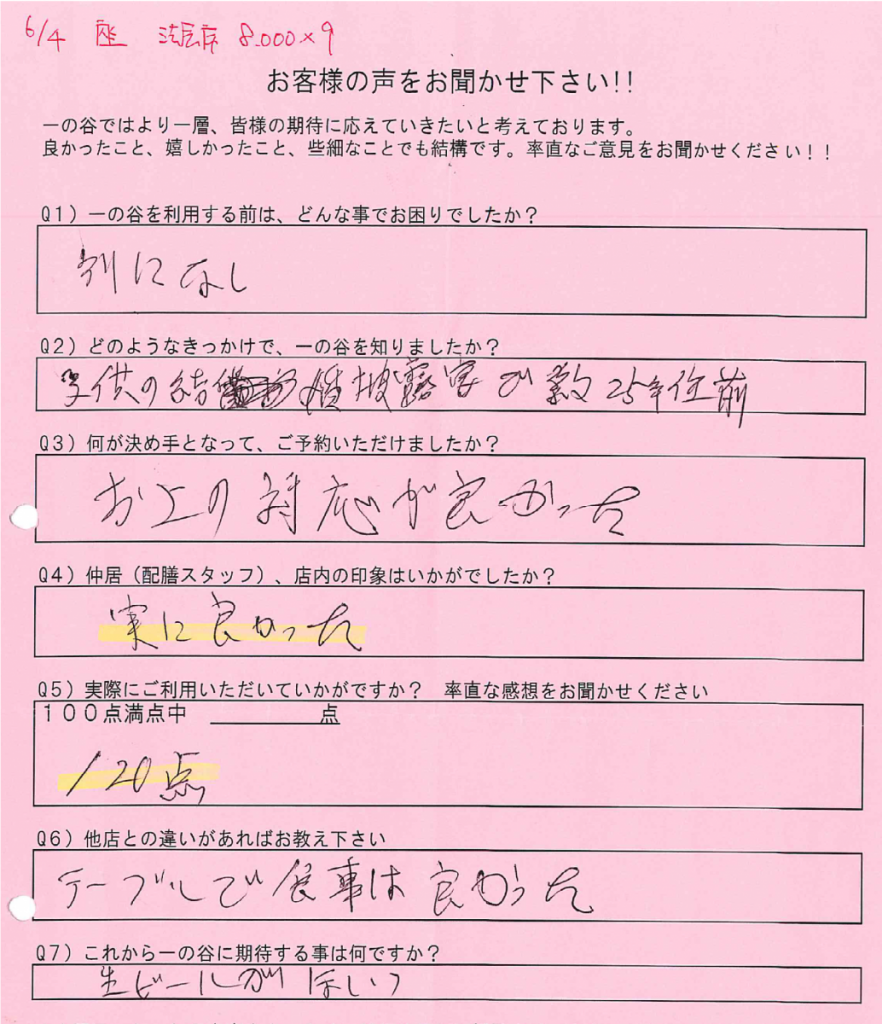 6/4 座 法要 8.000×9
お客様の声をお聞かせ下さい!!
一の谷ではより一層、皆様の期待に応えていきたいと考えております。
良かったこと、嬉しかったこと、些細なことでも結構です。率直なご意見をお聞かせください!!
Q1) 一の谷を利用する前は、どんな事でお困りでしたか?
別になし
Q2) どのようなきっかけで、一の谷を知りましたか?
子供の結婚披露宴で 25年位前
Q3) 何が決め手となって、ご予約いただけましたか?
お上の対応が良かった
Q4) 仲居(配膳スタッフ)、店内の印象はいかがでしたか?
実に良かった
Q5) 実際にご利用いただいていかがですか? 率直な感想をお聞かせください
100点満点中 ______点
120点
Q6) 他店との違いがあればお教え下さい
テーブルで食事は良かった
Q7) これから一の谷に期待する事は何ですか?
生ビールがほしい